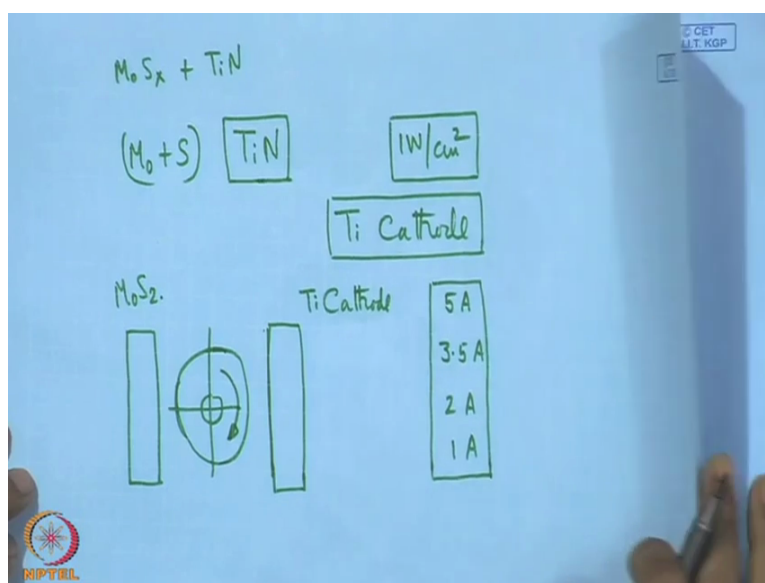 © CET
I.I.T. KGP
MoSx + TiN
(Mo+S) TiN 1W/cm²
Ti Cathode
MoS2. Ti Cathode 5A
3.5A
2A
1A
NPTEL